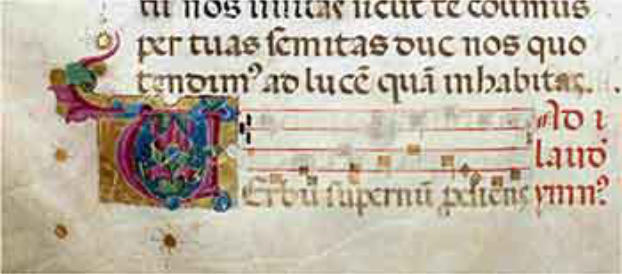 tu nos uisitas sicut te colimus
per tuas semitas duc nos quo
tendimꝰ ad lucẽ quã inhabitas.
Ad i
laud
VErbũ supernũ prodiens ymnꝰ